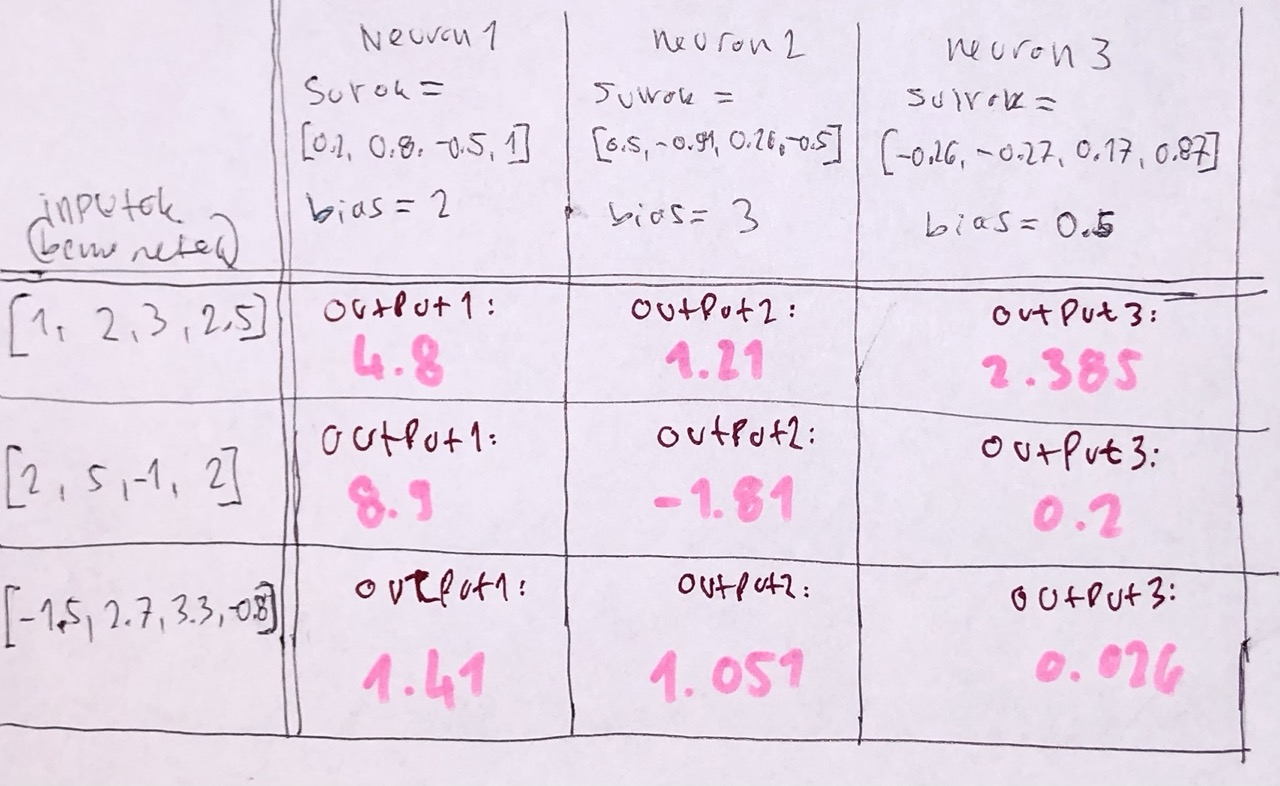 Neuron 1
Surok =
[0.2, 0.8. -0.5, 1]
bias = 2
neuron 2
=
[0.5, -0.91, 0.26, -0.5]
bias = 3
neuron 3
=
[-0.26, -0.27, 0.17, 0.87]
bias = 0.5
inputok
[1, 2, 3, 2.5]
output 1:
4.8
output 2:
1.21
output 3:
2.385
[2, 5, -1, 2]
output 1:
8.9
output 2:
-1.81
output 3:
0.2
[-1.5, 2.7, 3.3, -0.8]
output 1:
1.41
output 2:
1.051
output 3:
0.026